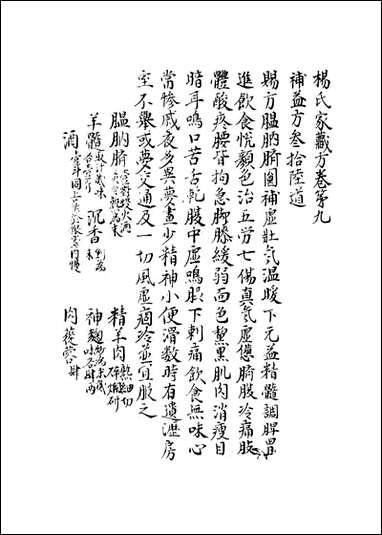 楊氏家藏方卷第九
補益方叁拾陸道
賜方膃肭臍圓補虛壯氣温暖下元益精髓調脾胃
進飲食悦顏色治五勞七傷真氣虛憊臍腹冷痛肢
體酸疼腰背拘急脚膝緩弱面色黧黑肌肉消瘦目
暗耳鳴口苦舌乾腹中虛鳴脇下刺痛飲食無味心
常慘戚夜多異夢晝少精神小便滑數時有遺瀝房
室不舉或夢交通及一切風虛痼冷並宜服之
膃肭臍 精羊肉
羊髓 沉香 神麴
酒 肉蓯蓉